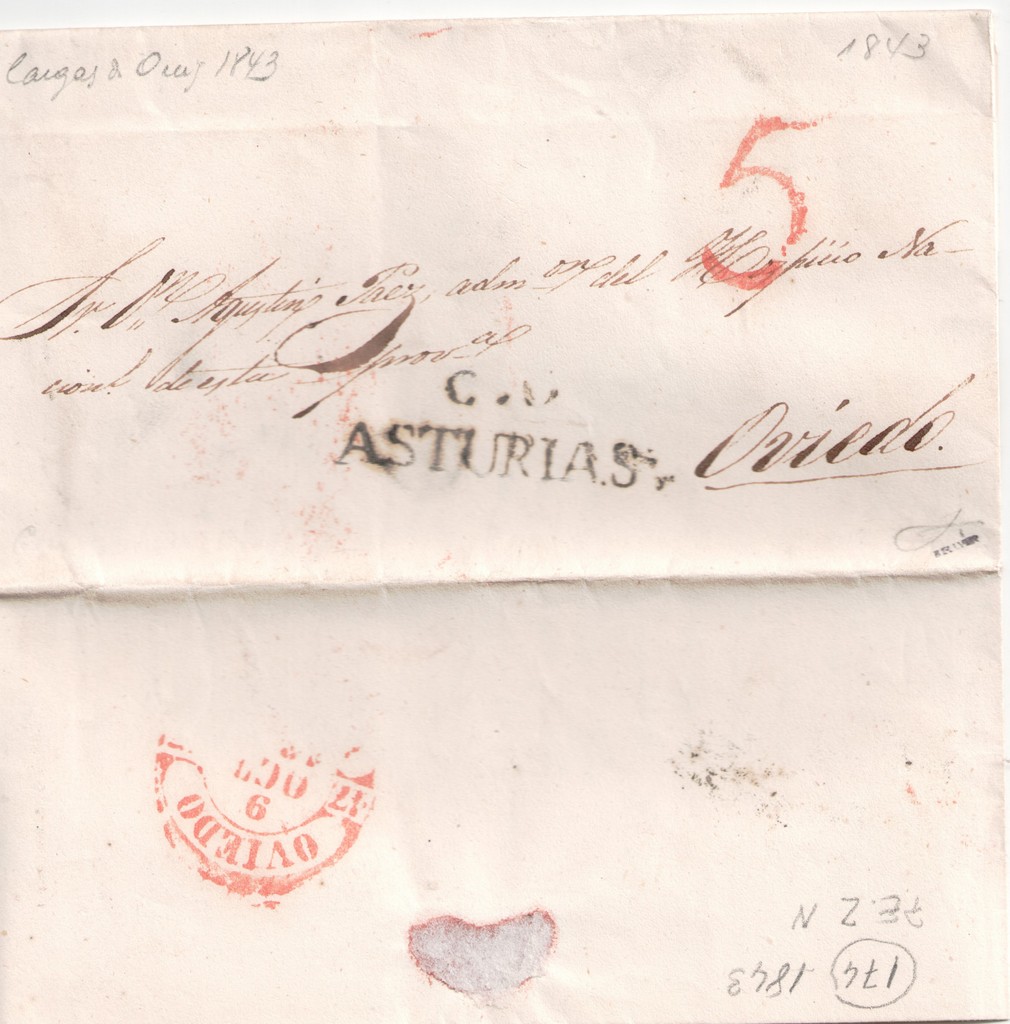 Cangas de Onis 1843
1843
5
Sr. Dn. Agustin Paez, admor. del Hospicio Na-
cional de esta prova.
C.
ASTURIAS.
Oviedo.
OVIEDO
6
OCT
1843
174